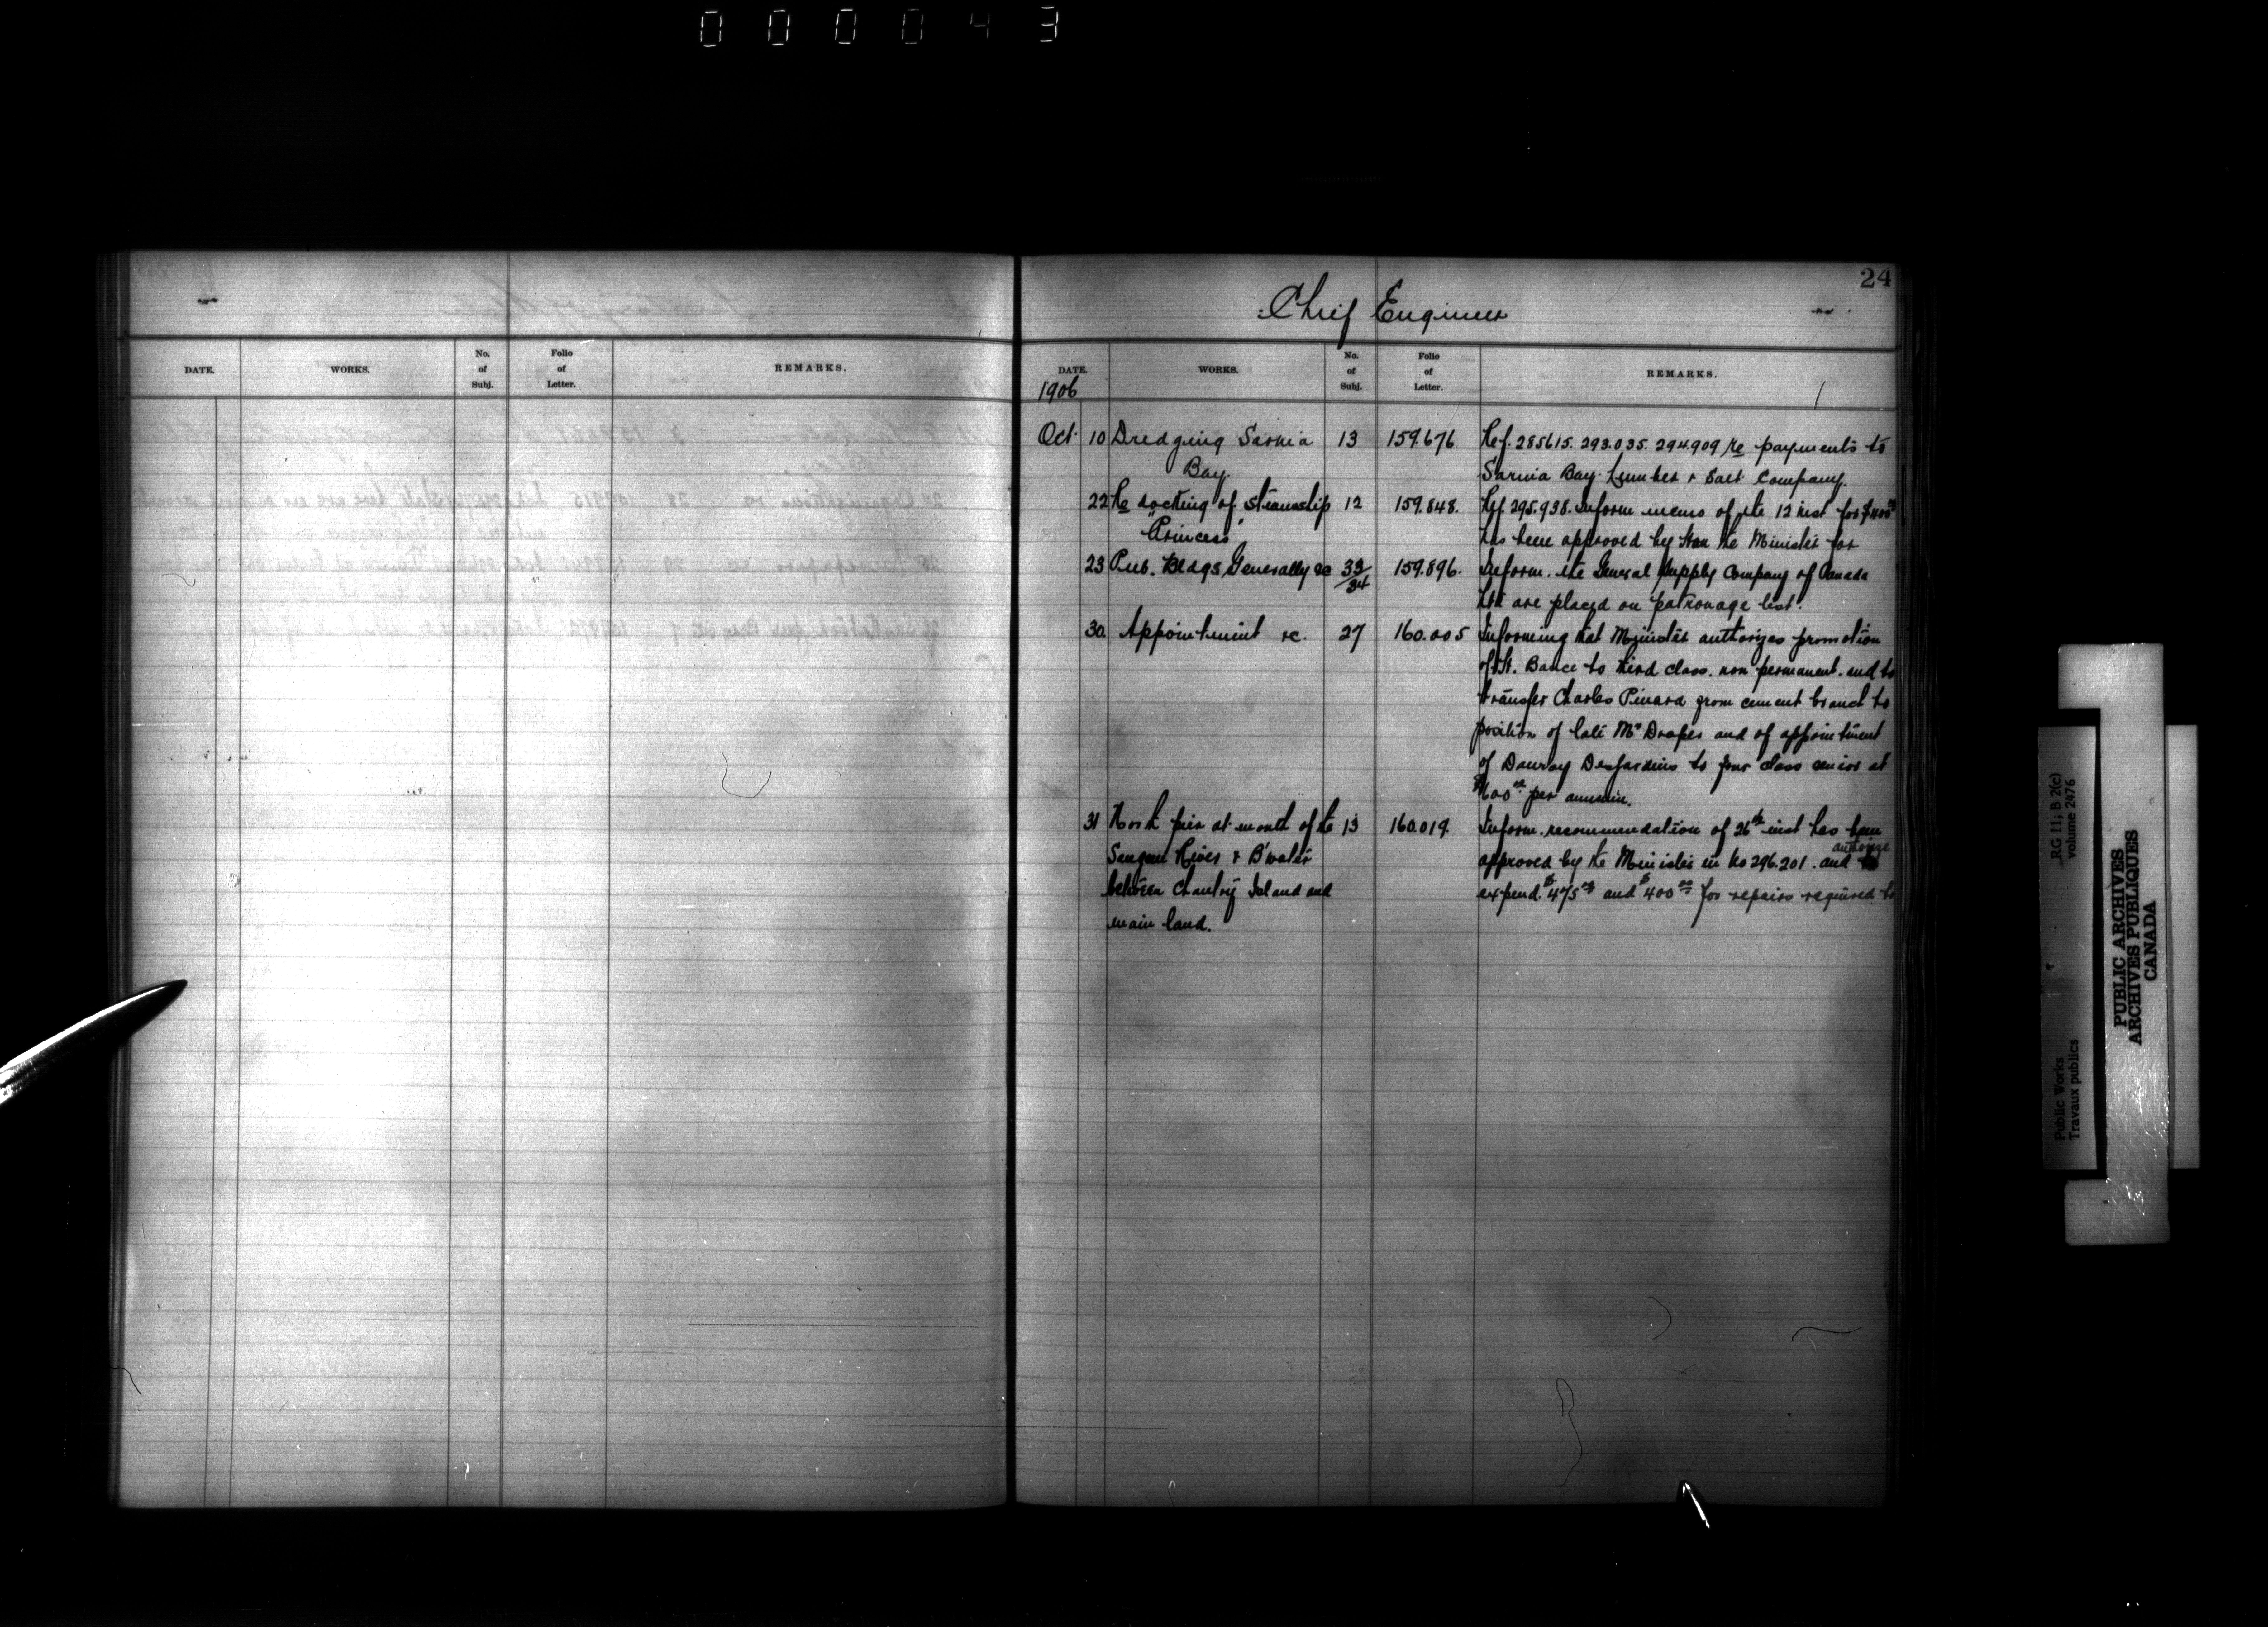 000043
24
Chief Engineer
DATE. WORKS. No. of Subj. Folio of Letter. REMARKS.
DATE. WORKS. No. of Subj. Folio of Letter. REMARKS.
1906
Oct. 10 Dredging Sarnia 13 159.676 Ref. 285615. 293.035. 294.909 re payments to
Bay. Sarnia Bay Lumber & Salt Company.
22 Re docking of steamship 12 159.848. Ref. 295.938. Inform memo of the 12 inst for $400
"Princess" has been approved by Hon the Minister for
23 Pub. Bldgs, Generally &c 33/34 159.896. Inform. the General Supply Company of Canada
Ltd are placed on patronage list.
30. Appointment &c. 27 160.005 Informing that Minister authorizes promotion
of Bance to third class. non permanent. and to
transfer Charles Pinard from cement branch to
position of late Mr Draper and of appointment
of Dauray Desjardins to four class senior at
$600 per annum.
31 North pier at mouth of the 13 160.019. Inform. recommendation of 26th inst has been
Saugeen River & B'water approved by the Minister in No 296.201. and authorize
between Chantry Island and expend. $475 and $400 for repairs required to
main land.
RG 11; B 2(c)
volume 2476
Public Works
Travaux publics
PUBLIC ARCHIVES
ARCHIVES PUBLIQUES
CANADA